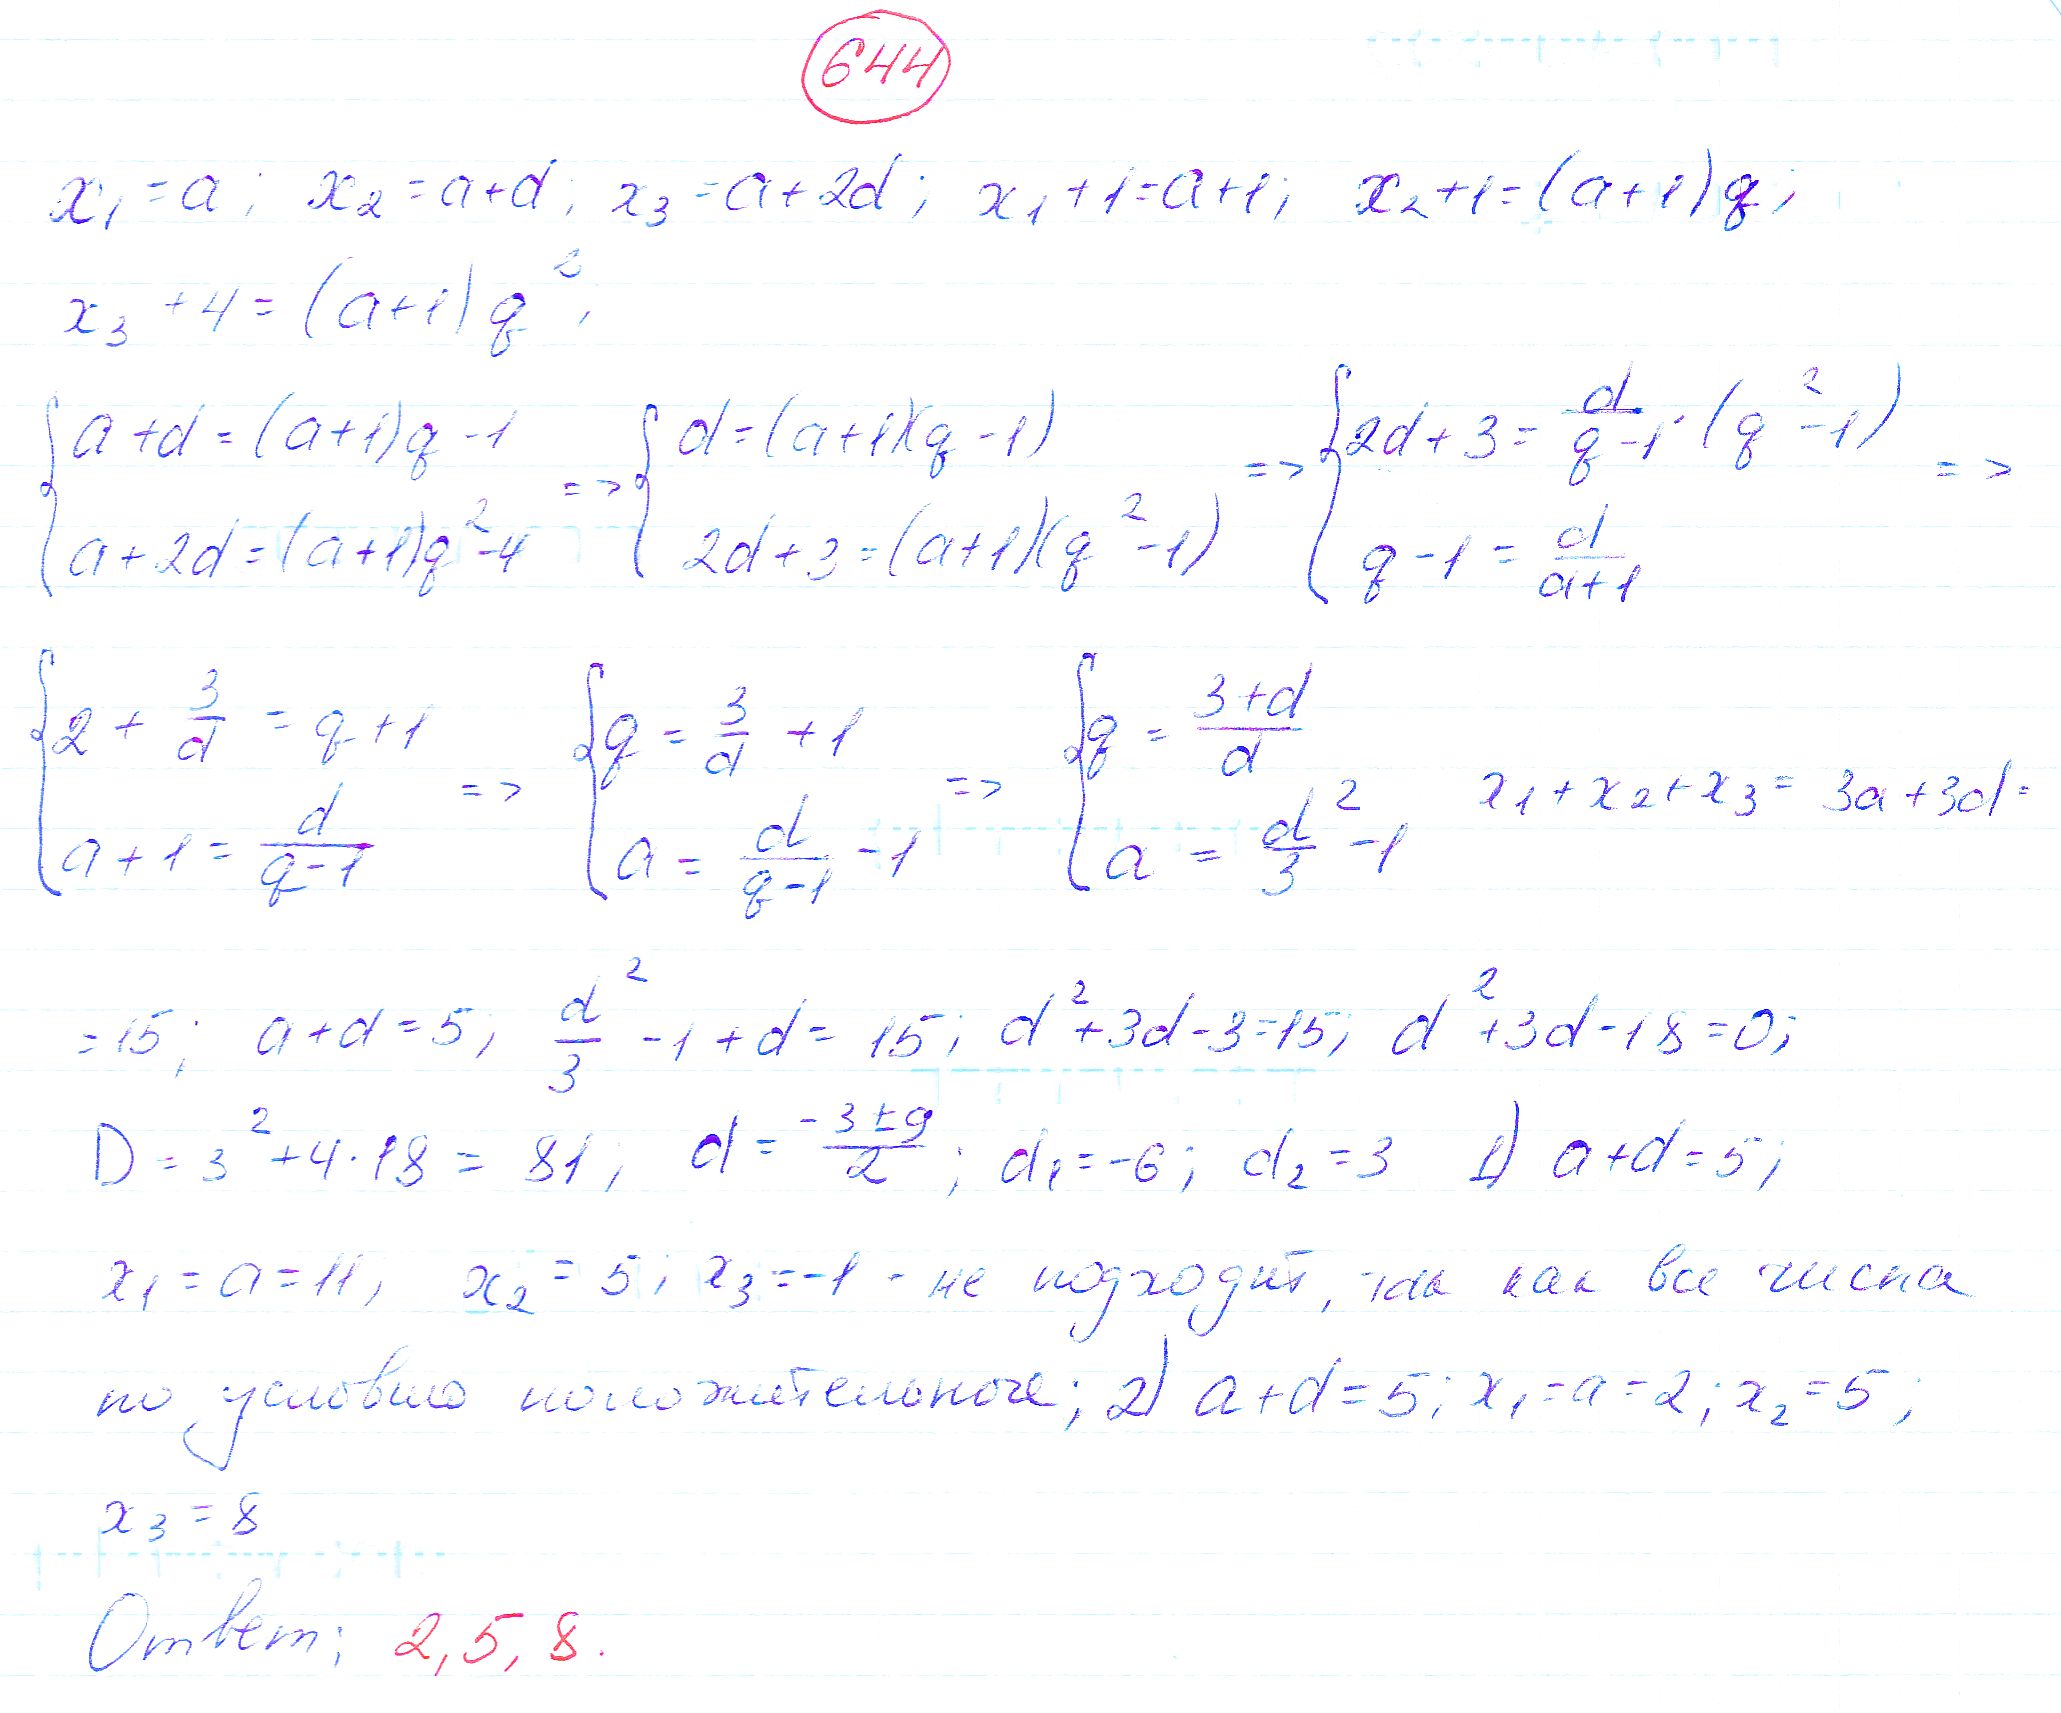 644
x₁ = a; x₂ = a+d; x₃ = a+2d; x₁+1 = a+1; x₂+1 = (a+1)q;
x₃+4 = (a+1)q²;
{ a+d = (a+1)q-1 => { d = (a+1)(q-1) => { 2d+3 = d/(q-1)·(q²-1) =>
{ a+2d = (a+1)q²-4 { 2d+3 = (a+1)(q²-1) { q-1 = d/(a+1)
{ 2 + 3/d = q+1 => { q = 3/d + 1 => { q = (3+d)/d x₁+x₂+x₃ = 3a+3d =
{ a+1 = d/(q-1) { a = d/(q-1) - 1 { a = d²/3 - 1
= 15; a+d = 5; d²/3 - 1 + d = 15; d²+3d-3=15; d²+3d-18=0;
D = 3²+4·18 = 81; d = (-3±9)/2; d₁=-6; d₂=3 1) a+d=5;
x₁ = a = 11, x₂ = 5; x₃ = -1 - не подходит, так как все числа
по условию положительные; 2) a+d=5; x₁=a=2; x₂=5;
x₃ = 8
Ответ: 2, 5, 8.